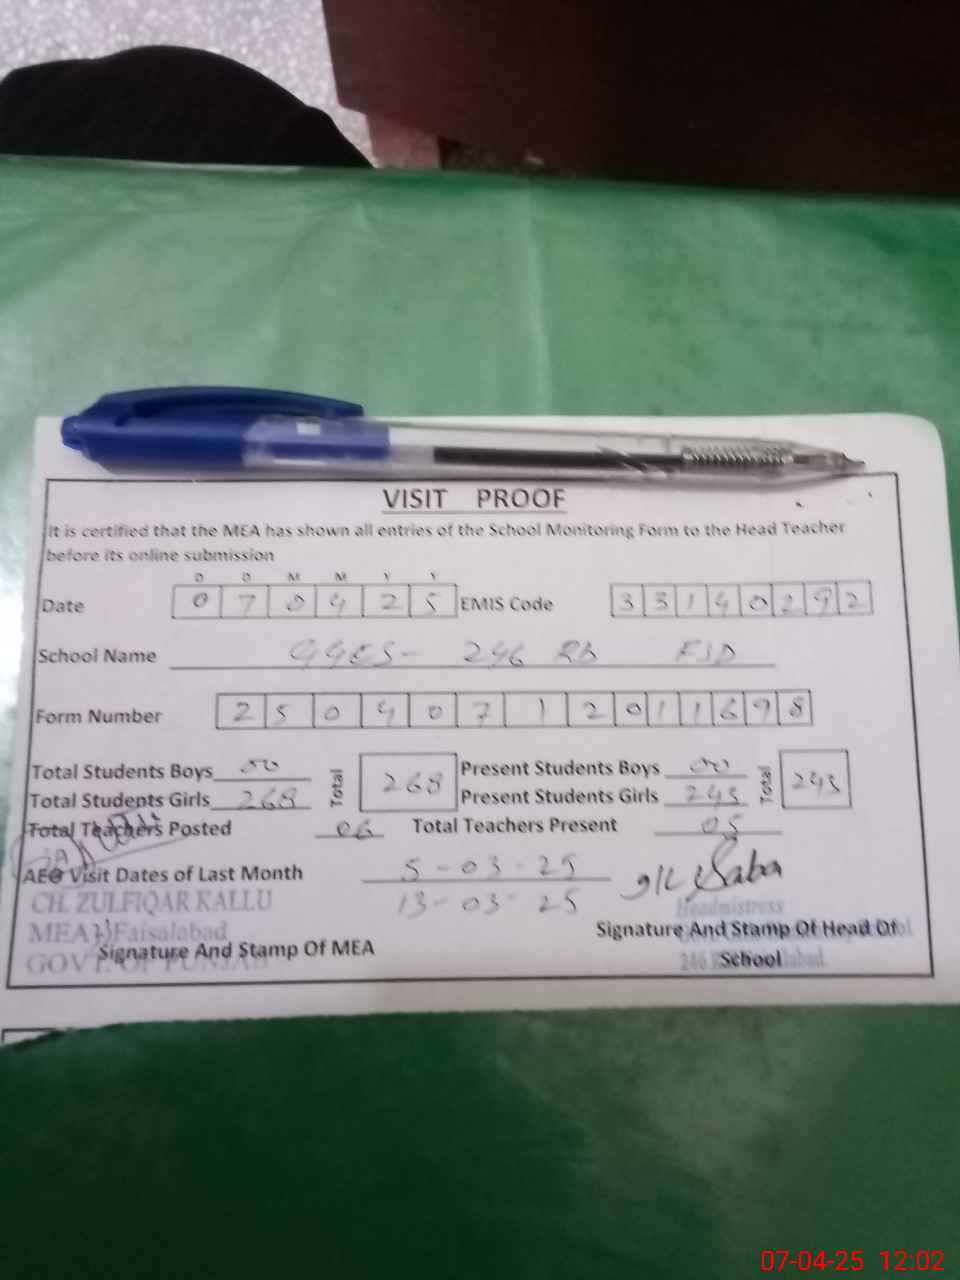 VISIT PROOF
It is certified that the MEA has shown all entries of the School Monitoring Form to the Head Teacher
before its online submission
D D M M Y Y
Date 0 7 0 4 2 5 EMIS Code 3 3 1 4 0 2 9 2
School Name GGES- 246 RB FSD
Form Number 2 5 0 4 0 7 1 2 0 1 1 6 9 8
Total Students Boys 00 Total 268 Present Students Boys 00 Total 243
Total Students Girls 268 Present Students Girls 243
Total Teachers Posted 06 Total Teachers Present 05
AEO Visit Dates of Last Month 5-03-25
13-03-25
Saba
CH. ZULFIQAR KALLU
MEA Faisalabad
GOVT. OF PUNJAB
Signature And Stamp Of MEA
Headmistress
246
Signature And Stamp Of Head Of
School
07-04-25 12:02